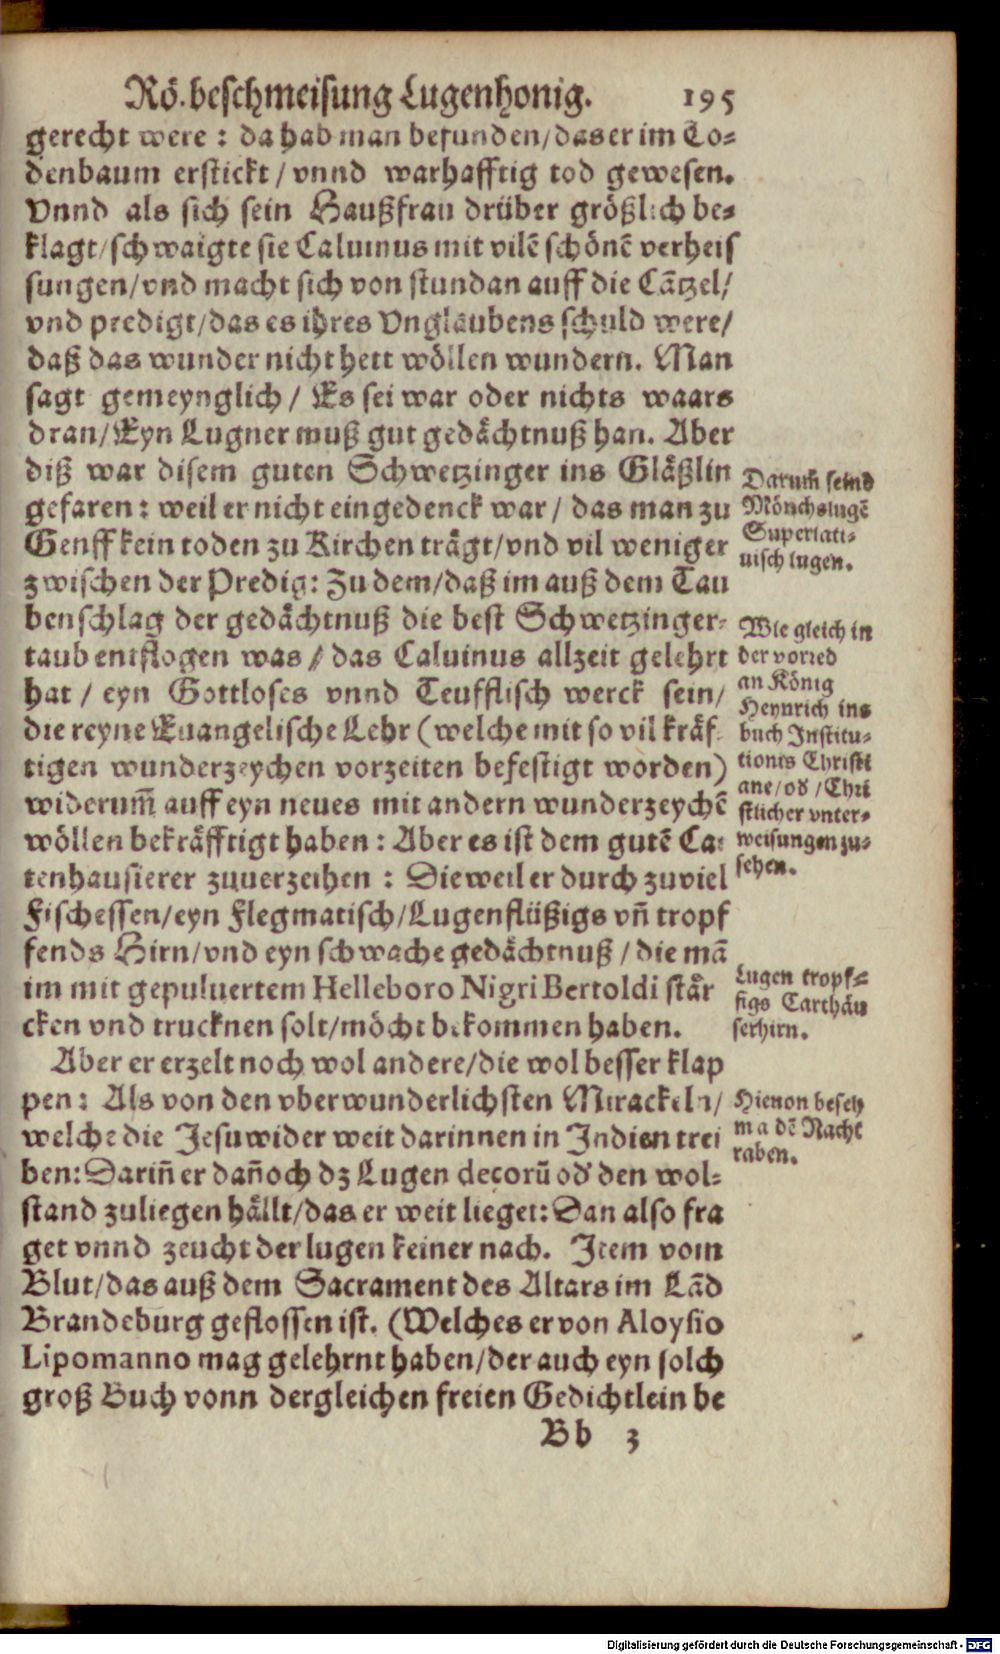 Rö. beschmeisung Lugenhonig. 195
gerecht were : da hab man befunden/das er im To-
denbaum erstickt / vnnd warhafftig tod gewesen.
Vnnd als sich sein Haußfrau drüber größlich be-
klagt/schwaigte sie Caluinus mit vilē schönē verheis
sungen/vnd macht sich von stundan auff die Cātzel/
vnd predigt/das es ihres Vnglaubens schuld were/
daß das wunder nicht hett wöllen wundern. Man
sagt gemeynglich / Es sei war oder nichts waars
dran/Eyn Lugner muß gut gedächtnuß han. Aber
diß war disem guten Schwetzinger ins Gläßlin
gefaren : weil er nicht eingedenck war / das man zu
Genff kein toden zu Kirchen trägt/vnd vil weniger
zwischen der Predig: Zu dem/daß im auß dem Tau
benschlag der gedächtnuß die best Schwetzinger-
taub entflogen was / das Caluinus allzeit gelehrt
hat / eyn Gottloses vnnd Teufflisch werck sein/
die reyne Euangelische Lehr (welche mit so vil kräf-
tigen wunderzeychen vorzeiten befestigt worden)
widerum̄ auff eyn neues mit andern wunderzeychē
wöllen bekräfftigt haben : Aber es ist dem gutē Ca-
tenhausierer zuuerzeihen : Dieweil er durch zuviel
Fischessen/eyn Flegmatisch/Lugenflüßigs vn̄ tropf
fends Hirn/vnd eyn schwache gedächtnuß / die mā
im mit gepuluertem Helleboro Nigri Bertoldi stär
cken vnd trucknen solt/möcht bekommen haben.
Aber er erzelt noch wol andere/die wol besser klap
pen : Als von den vberwunderlichsten Mirackeln/
welche die Jesuwider weit darinnen in Indien trei
ben: Darin̄ er dan̄och dz Lugen decorū od' den wol-
stand zuliegen hällt/das er weit lieget: Dan also fra
get vnnd zeucht der lugen keiner nach. Item vom
Blut/das auß dem Sacrament des Altars im Lād
Brandeburg geflossen ist. (Welches er von Aloysio
Lipomanno mag gelehrnt haben/der auch eyn solch
groß Buch vonn dergleichen freien Gedichtlein be
Bb 3
Darum̄ seind
Mönchslugē
Superlati-
uisch lugen.
Wie gleich in
der vorred
an König
Heynrich ins
buch Institu-
tionis Christi
ane/od' /Chri
stlicher vnter-
weisungen zu-
sehen.
Lugen tropf-
figs Carthäu
serhirn.
Hieuon beseh
ma dē Nacht
raben.
Digitalisierung gefördert durch die Deutsche Forschungsgemeinschaft - DFG